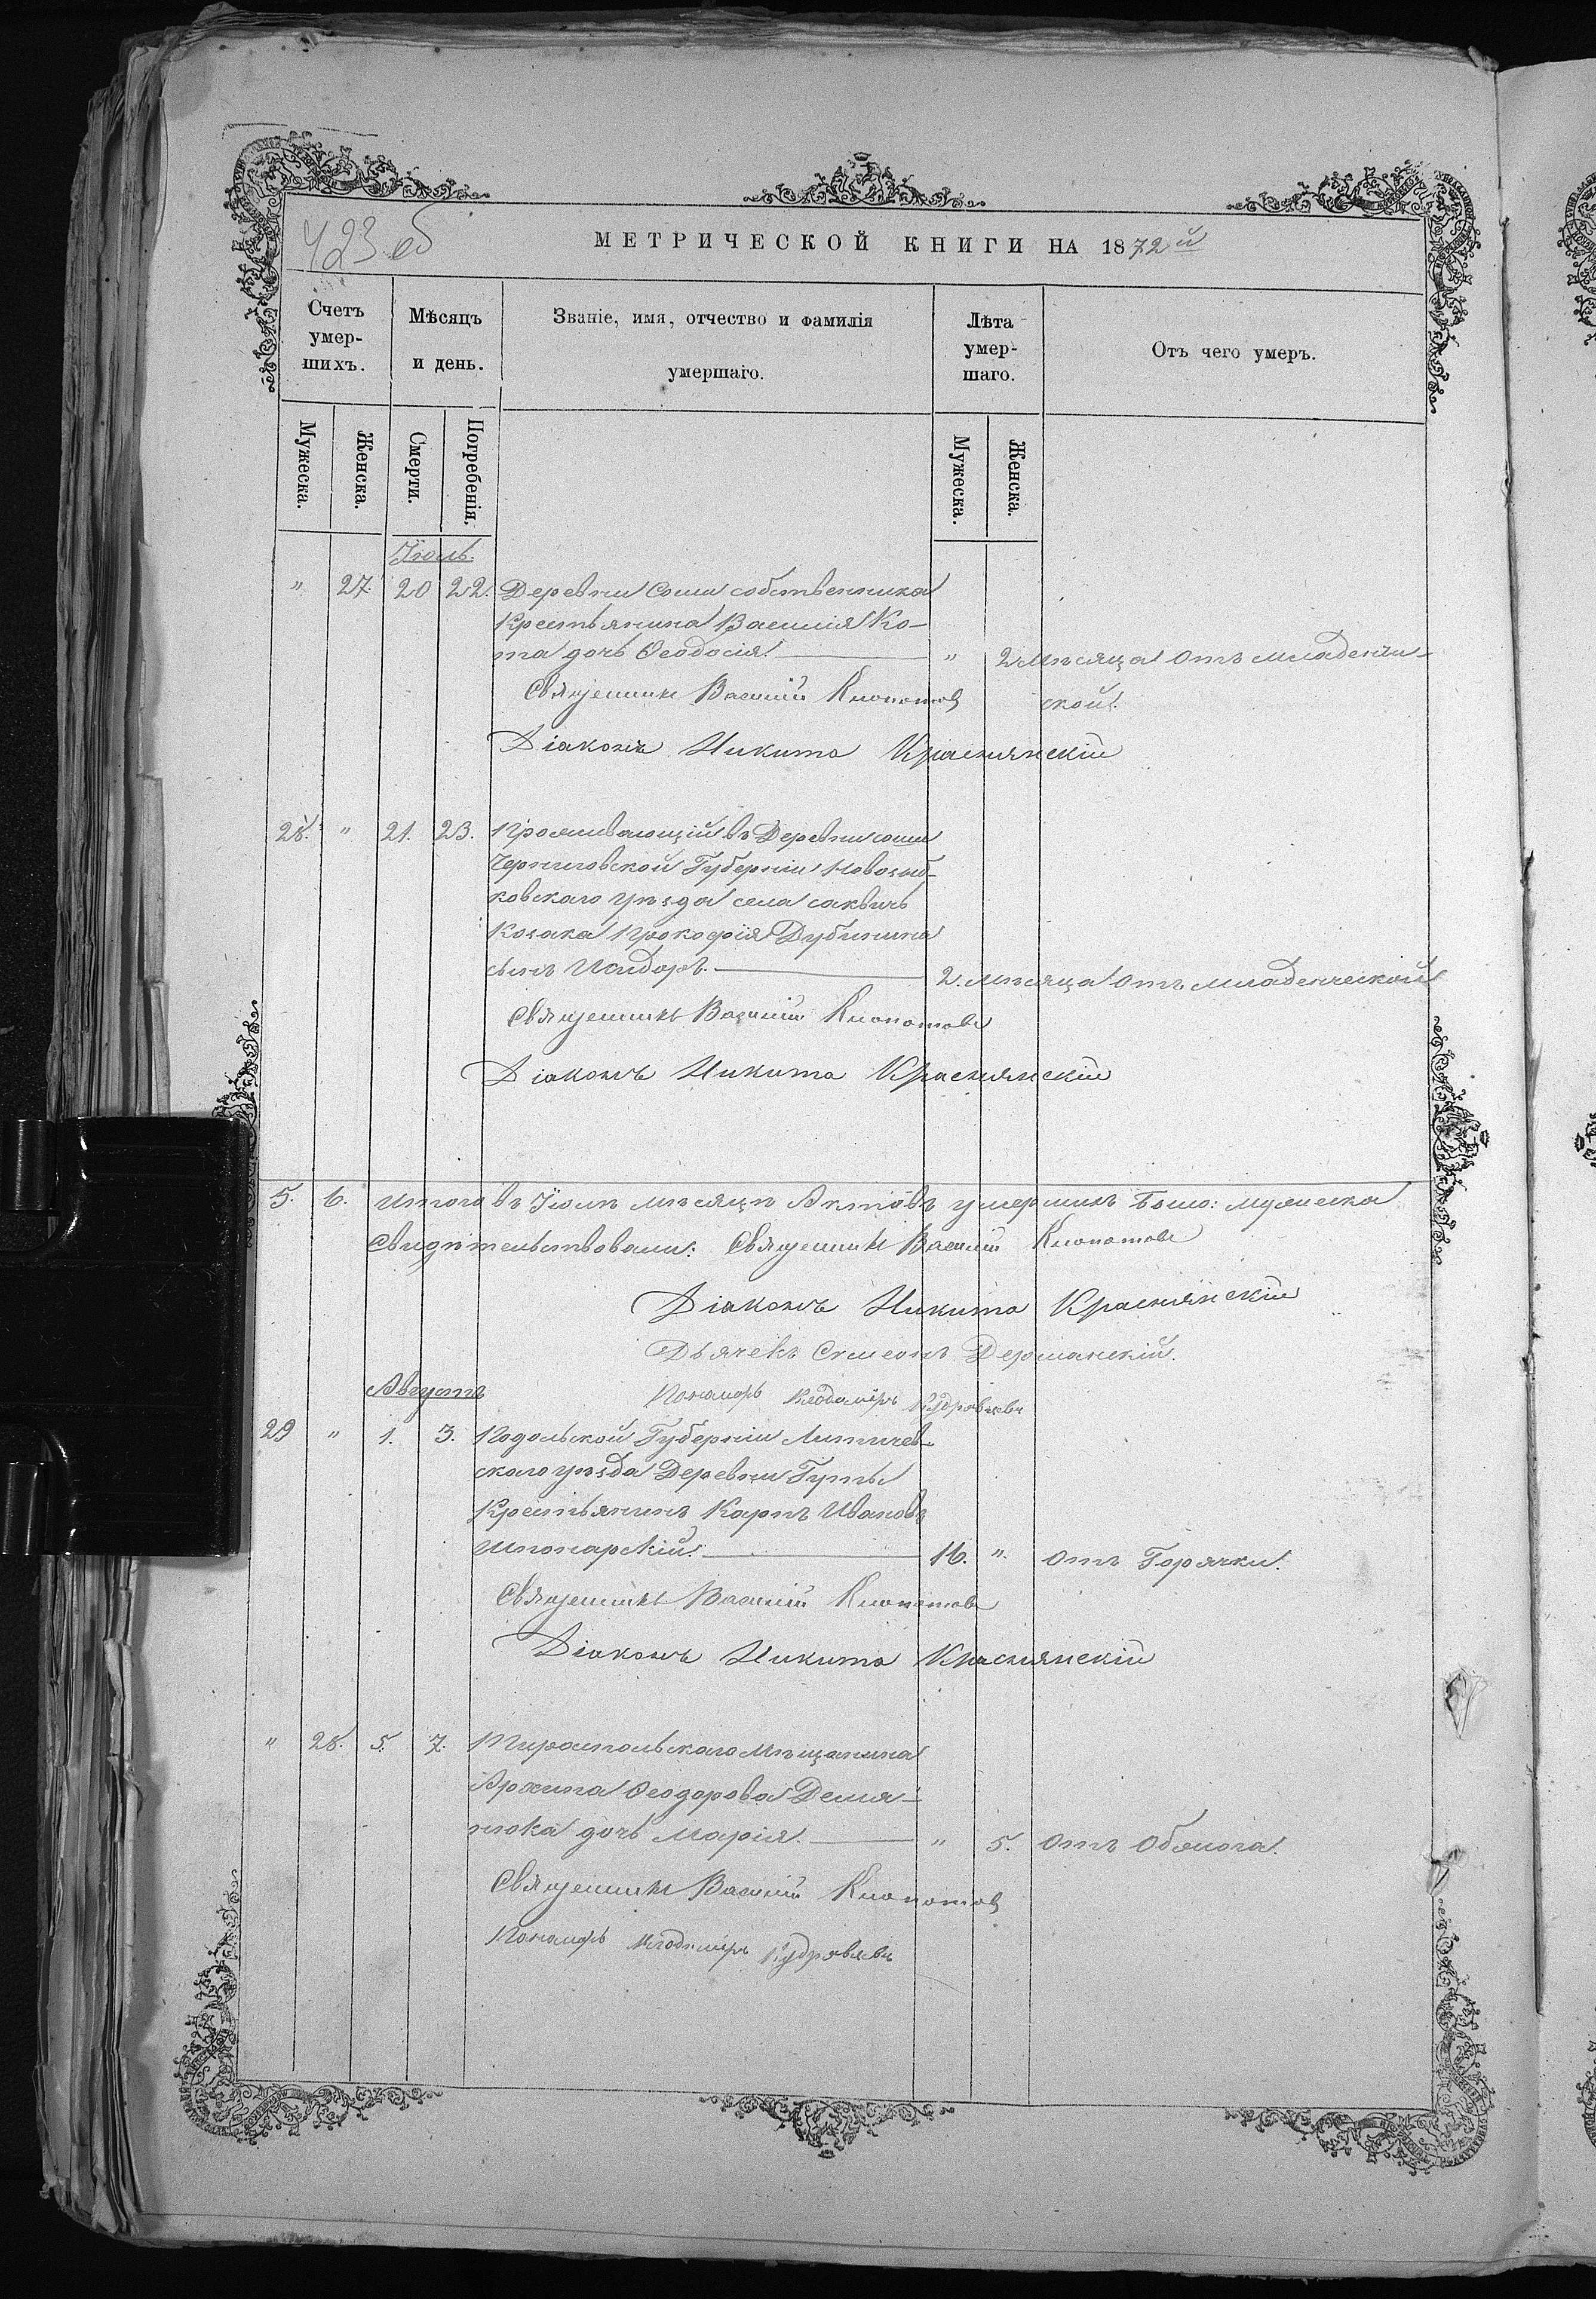 423 об
МЕТРИЧЕСКОЙ КНИГИ НА 1872й
Счетъ умер-шихъ.
Мѣсяцъ и день.
Званіе, имя, отчество и фамилія умершаго.
Лѣта умер-шаго.
Отъ чего умеръ.
Мужеска.
Женска.
Смерти.
Погребенія.
Мужеска.
Женска.
Іюль.
" 27. 20 22. Деревни Соши собственника
Крестьянина Василія Ко-
та дочь Ѳеодосія. " 2 мѣсяца Отъ младенче-
ской.
Священникъ Василій Клопотов
Діаконъ Никита Краснянскій
28. " 21. 23. Проживающій въ Деревни соши
Черниговской Губерніи Новозыб-
ковскаго уѣзда села
Козака Прокофія Дубинина
сынъ Исидоръ. 2. мѣсяца Отъ младенческой
Священникъ Василій Клопотовъ
Діаконъ Никита Краснянскій
5. 6. Итого въ Іюлѣ мѣсяцѣ Актовъ умершихъ Было: мужеска
Свидѣтельствовали: Священникъ Василій Клопотовъ
Діаконъ Никита Краснянскій
Дьячекъ Симеонъ Дерманскій.
Пономарь Владиміръ Кудрявцевъ
Августъ
29 " 1. 3. Подольской Губерніи Литичев-
скаго уѣзда Деревни Гуты
Крестьянинъ Карпъ Ивановъ
16. " Отъ Горячки.
Священникъ Василій Клопотовъ
Діаконъ Никита Краснянскій
" 28. 5. 7. Тираспольскаго Мѣщанина
Архипа Ѳеодорова Демя-
нюка дочь Марія. " 5. Отъ Обжога.
Священникъ Василій Клопотов
Пономарь Владиміръ Кудрявцевъ